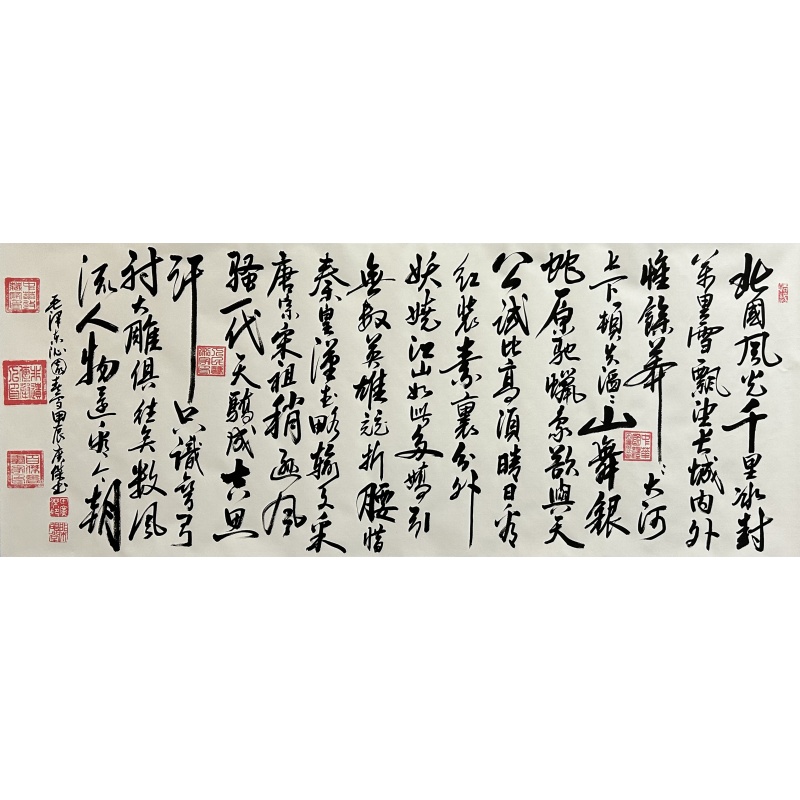 北國風光千里冰封
萬里雪飄望长城内外
惟餘莽々大河
上下頓失滔々山舞銀
蛇原馳蠟象欲與天
公試比高須晴日看
红装素裹分外
妖娆江山如此多嬌引
無數英雄競折腰惜
秦皇漢武略輸文采
唐宗宋祖稍遜風
騷一代天驕成吉思
汗只識彎弓
射大雕俱往矣數風
流人物還看今朝
毛泽东沁園春雪甲辰傑书